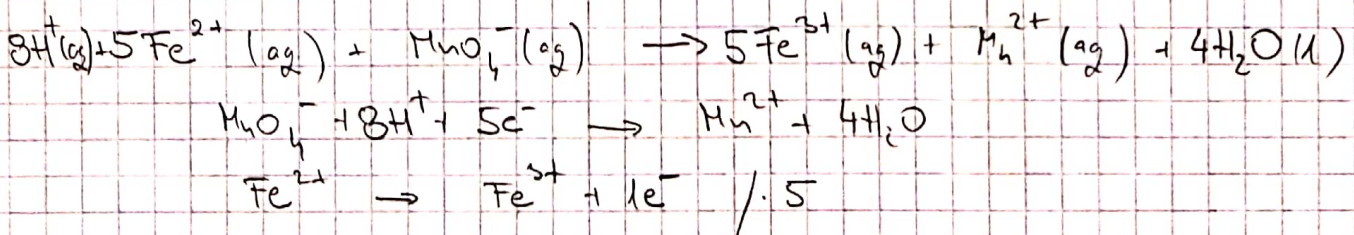 8H⁺(aq)+5Fe²⁺ (aq) + MnO₄⁻ (aq) → 5Fe³⁺ (aq) + Mn²⁺ (aq) + 4H₂O (l)
MnO₄⁻ + 8H⁺ + 5e⁻ → Mn²⁺ + 4H₂O
Fe²⁺ → Fe³⁺ + 1e⁻ /· 5